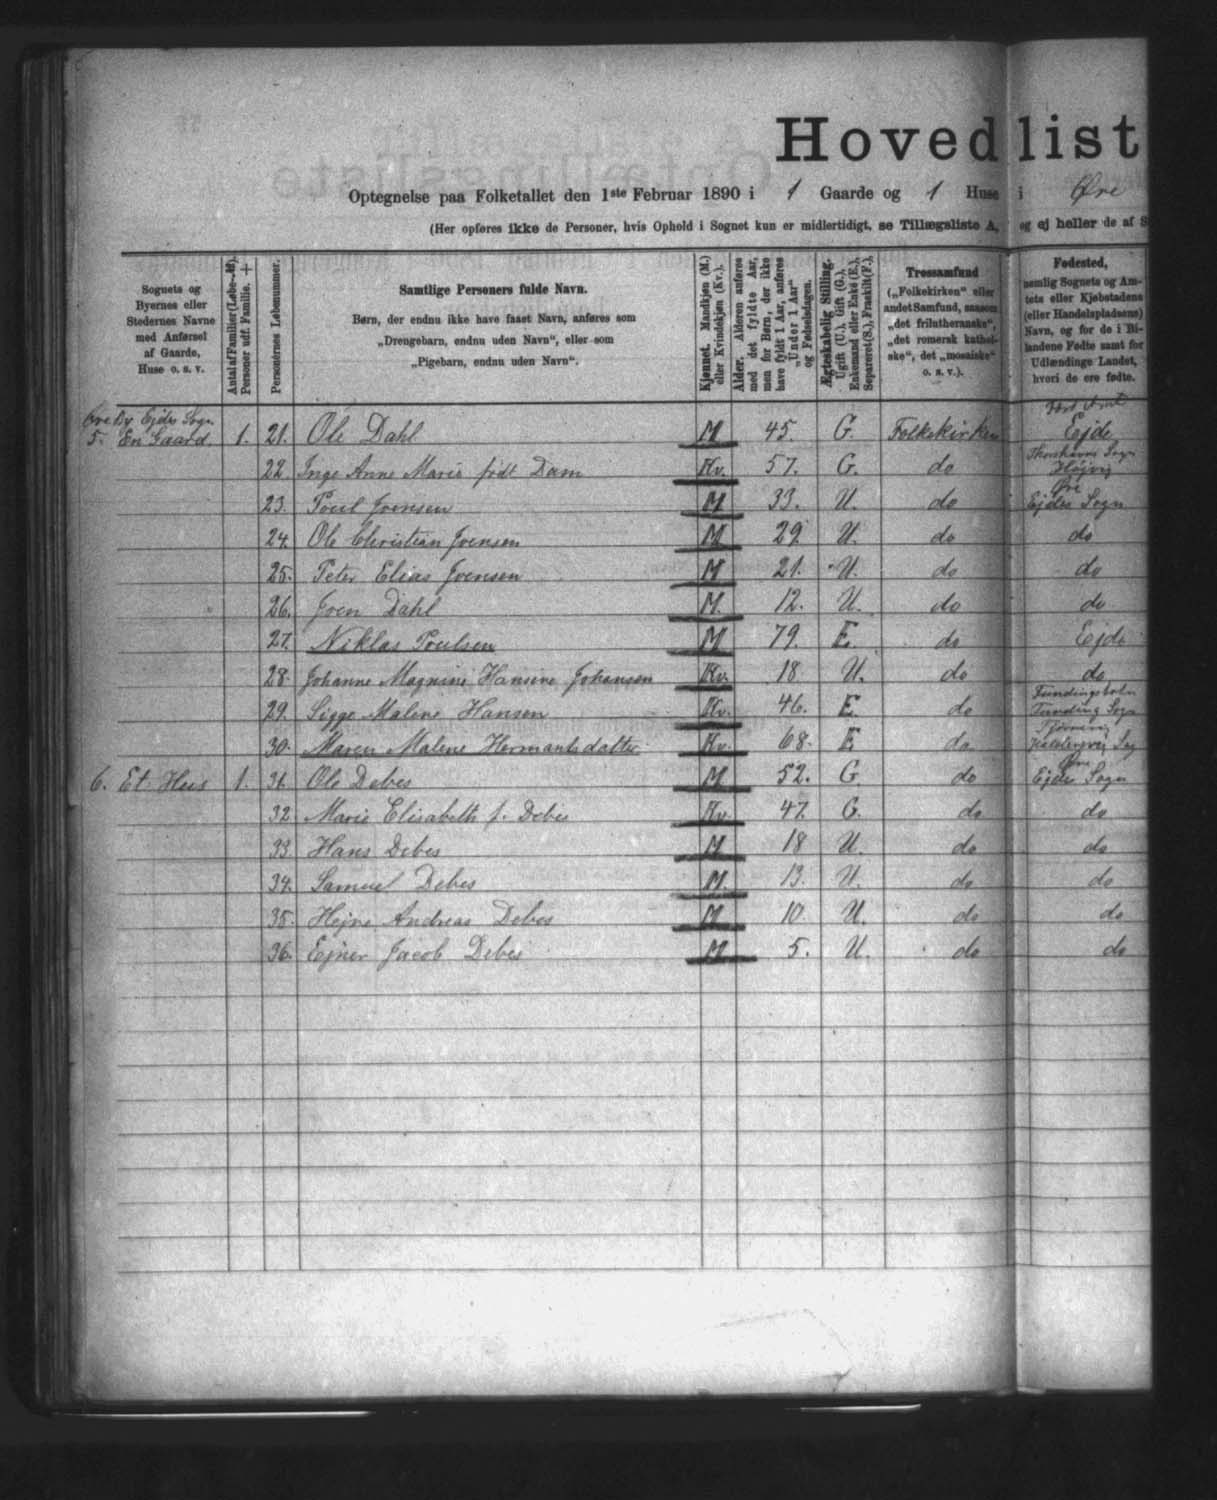 Hovedlist
Optegnelse paa Folketallet den 1ste Februar 1890 i 1 Gaarde og 1 Huse i Øre
(Her opføres ikke de Personer, hvis Ophold i Sognet kun er midlertidigt, se Tillægsliste A, og ej heller de af S
Sognets og
Byernes eller
Stedernes Navne
med Anførsel
af Gaarde,
Huse o. s. v.
Antal af Familier (Løbe-№).
Personer udf. Familie. +
Personernes Løbenummer.
Samtlige Personers fulde Navn.
Børn, der endnu ikke have faaet Navn, anføres som
„Drengebarn, endnu uden Navn“, eller som
„Pigebarn, endnu uden Navn“.
Kjønnet. Mandkjøn (M.)
eller Kvindekjøn (Kv.).
Alder. Alderen anføres
med det fyldte Aar,
men for Børn, der ikke
have fyldt 1 Aar, anføres
„Under 1 Aar“
og Fødselsdagen.
Ægteskabelig Stilling.
Ugift (U.), Gift (G.),
Enkemand eller Enke (E.),
Separeret (S.), Fraskilt (F.).
Trossamfund
(„Folkekirken“ eller
andet Samfund, saasom
„det frilutheranske“,
„det romersk kathol-
ske“, det „mosaiske“
o. s. v.).
Fødested,
nemlig Sognets og Am-
tets eller Kjøbstadens
(eller Handelspladsens)
Navn, og for de i Bi-
landene Fødte samt for
Udlændinge Landet,
hvori de ere fødte.
Øre By Ejdes Sogn
5. En Gaard. 1. 21. Ole Dahl M 45. G. Folkekirken Ejde
22. Inge Anne Marie født Dam Kv. 57. G. do Thorshavns Sogn Højvig
23. Poul Joensen M 33. U. do Øre Ejdes Sogn
24. Ole Christian Joensen M 29. U. do do
25. Peter Elias Joensen M 21. U. do do
26. Joen Dahl M. 12. U. do do
27. Niklas Poulsen M 79. E. do Ejde
28. Johanne Magnine Hansine Johansen Kv. 18 U. do do
29. Sigge Malene Hansen Kv. 46. E. do Sogn
30. Maren Malene Hermansdatter Kv. 68. E do
6. Et Huus 1. 31. Ole Debes M. 52. G. do Øre Ejdes Sogn
32. Marie Elisabeth f. Debes Kv. 47. G. do do
33. Hans Debes M 18 U. do do
34. Samuel Debes M. 13. U. do do
35. Hejne Andreas Debes M 10. U. do do
36. Ejner Jacob Debes M 5. U. do do